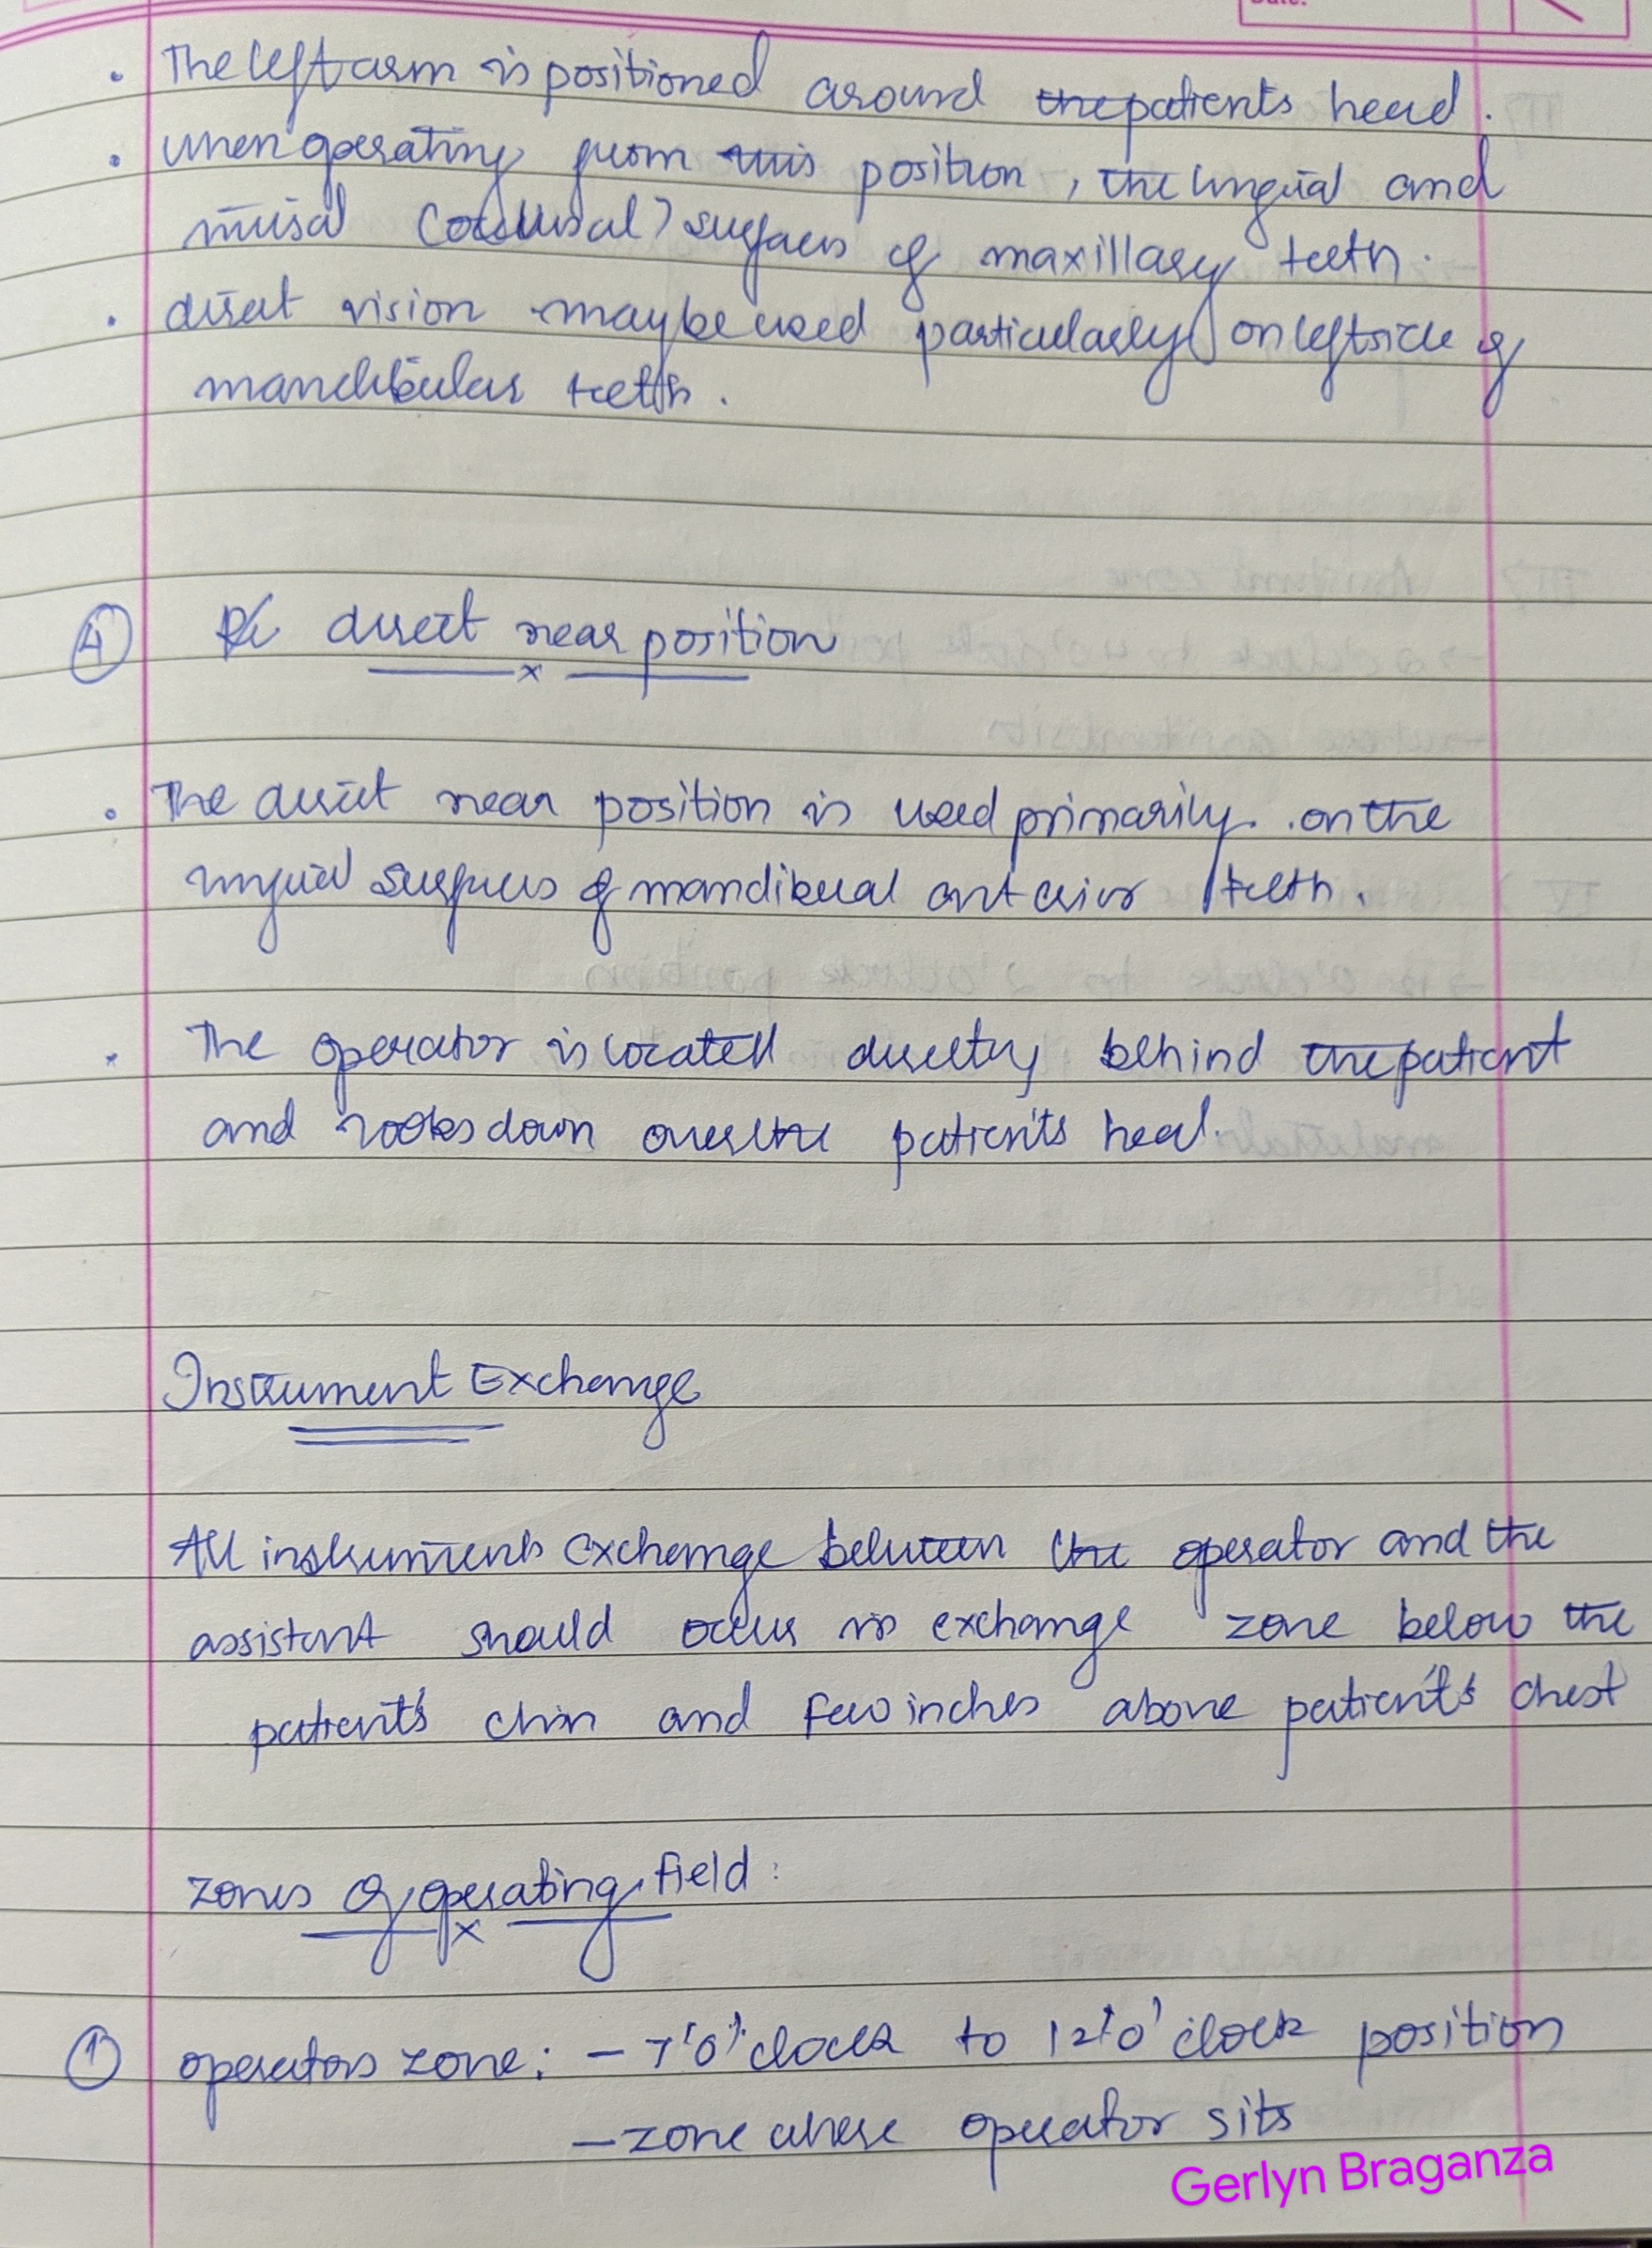 • The left arm is positioned around the patients head.
• when operating from this position, the lingual and
incisal (occlusal) surfaces of maxillary teeth.
• direct vision may be used particularly on left side of
mandibular teeth.
④ direct rear position
• The direct rear position is used primarily on the
lingual surfaces of mandibual anterior teeth.
• The operator is located directly behind the patient
and looks down over the patient's head.
Instrument Exchange
All instruments exchange between the operator and the
assistant should occur in exchange zone below the
patient's chin and few inches above patient's chest
zones of operating field:
① operators zone: - 7'0' clock to 12'0' clock position
- zone where operator sits
Gerlyn Braganza